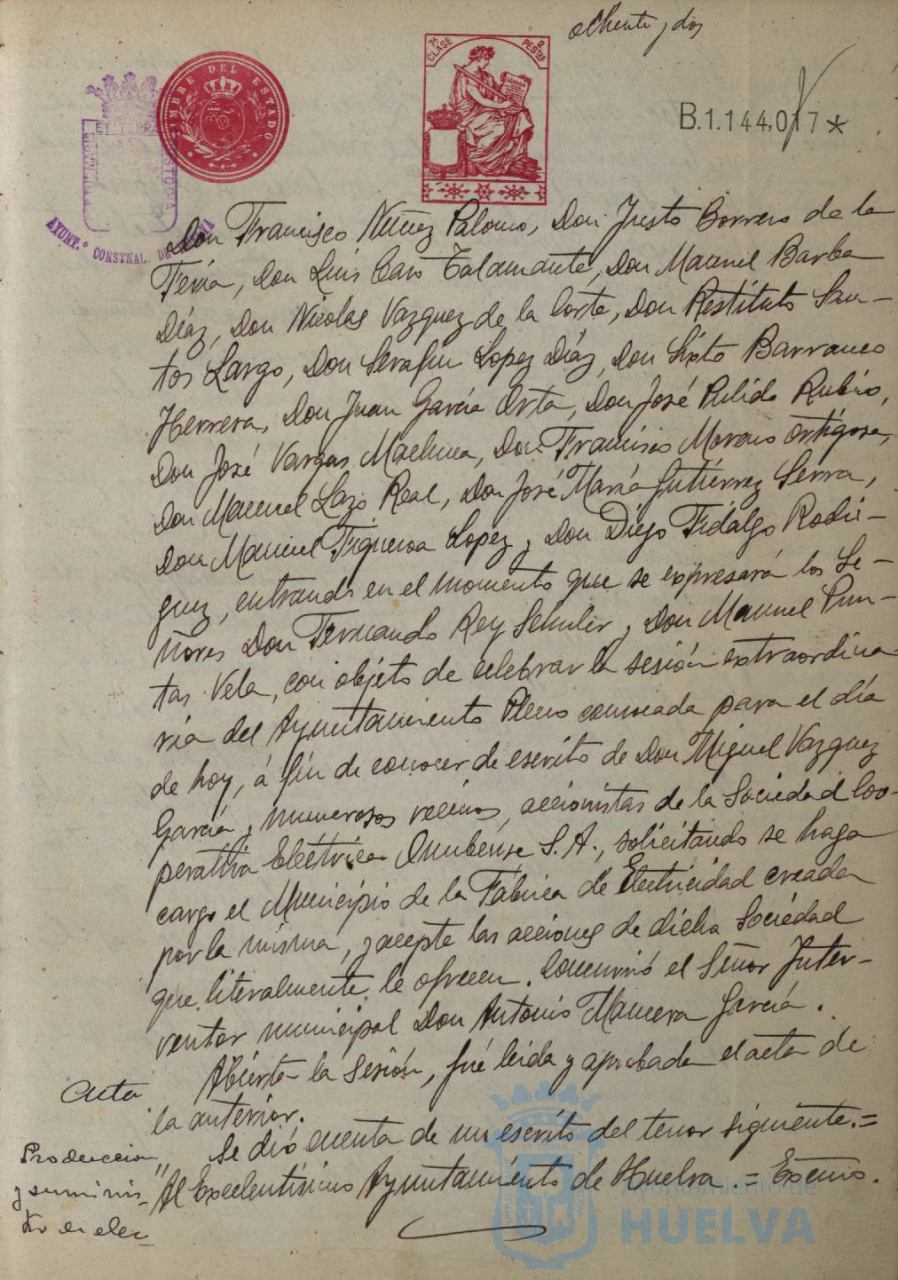 ochenta y dos
7ª CLASE
2 PESTAS
TIMBRE DEL ESTADO
B.1.144.017 *
AYUNT.º CONSTNAL. DE
Don Francisco Núñez Palomo, Don Justo Borrero de la
Feria, Don Luis Caro Talamante, Don Manuel Barba
Díaz, Don Nicolas Vazquez de la Corte, Don Restituto San-
tos Largo, Don Serafin Lopez Díaz, Don Sixto Barranco
Herrera, Don Juan García Orta, Don José Pulido Rubio,
Don José Vargas Machuca, Don Francisco Moreno Ortigosa,
Don Manuel Lazo Real, Don José María Gutiérrez Serra,
Don Manuel Figueroa Lopez y Don Diego Fidalgo Rodrí-
guez, entrando en el momento que se expresará los Se-
ñores Don Fernando Rey Schuler y Don Manuel Pun-
tas Vela, con objeto de celebrar la sesión extraordina
ria del Ayuntamiento Pleno convocada para el día
de hoy, á fin de conocer de escrito de Don Miguel Vazquez
García y numerosos vecinos, accionistas de la Sociedad Coo-
perativa Eléctrica Onubense S.A., solicitando se haga
cargo el Municipio de la Fábrica de Electricidad creada
por la misma, y acepte las acciones de dicha Sociedad
que literalmente le ofrecen. Concurrió el Señor Inter-
ventor municipal Don Antonio Mancera García.
Abierta la sesión, fué leida y aprobada el acta de
Acta
la anterior.
Se dió cuenta de un escrito del tenor siguiente.=
Produccion
y suminis-
tro de elec-
"Al Excelentísimo Ayuntamiento de Huelva.= Excmo.
Ayuntamiento de
HUELVA